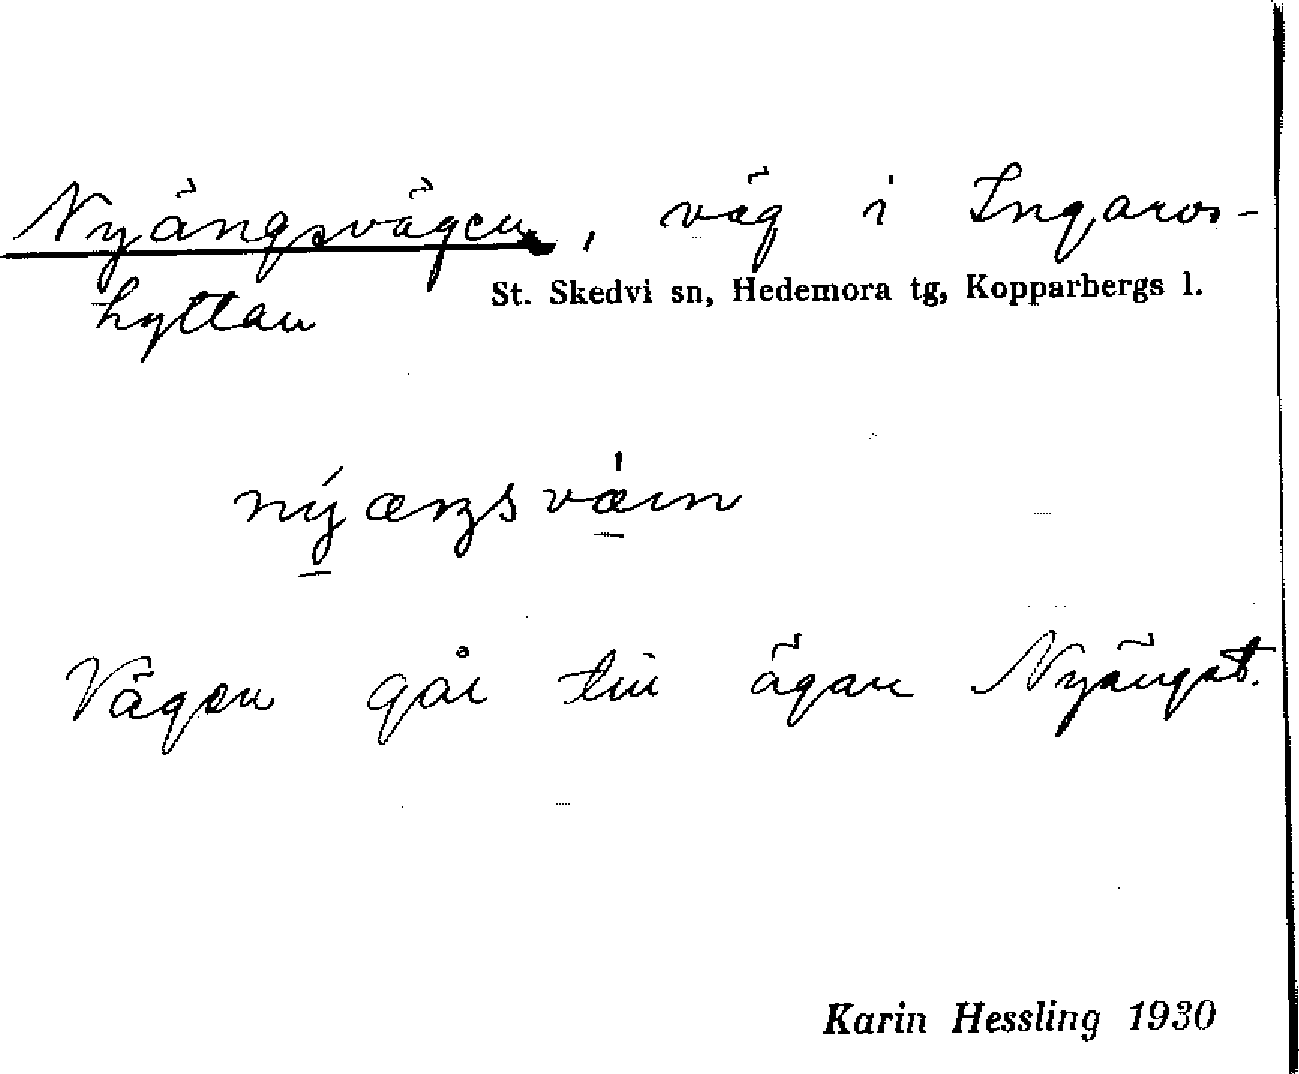 Nyängsvägen, väg i Ingarvs-
St. Skedvi sn, Hedemora tg, Kopparbergs l.
hyttan
nýæŋsvæ̍ın
Vägen går till ägan Nyänget.
Karin Hessling 1930